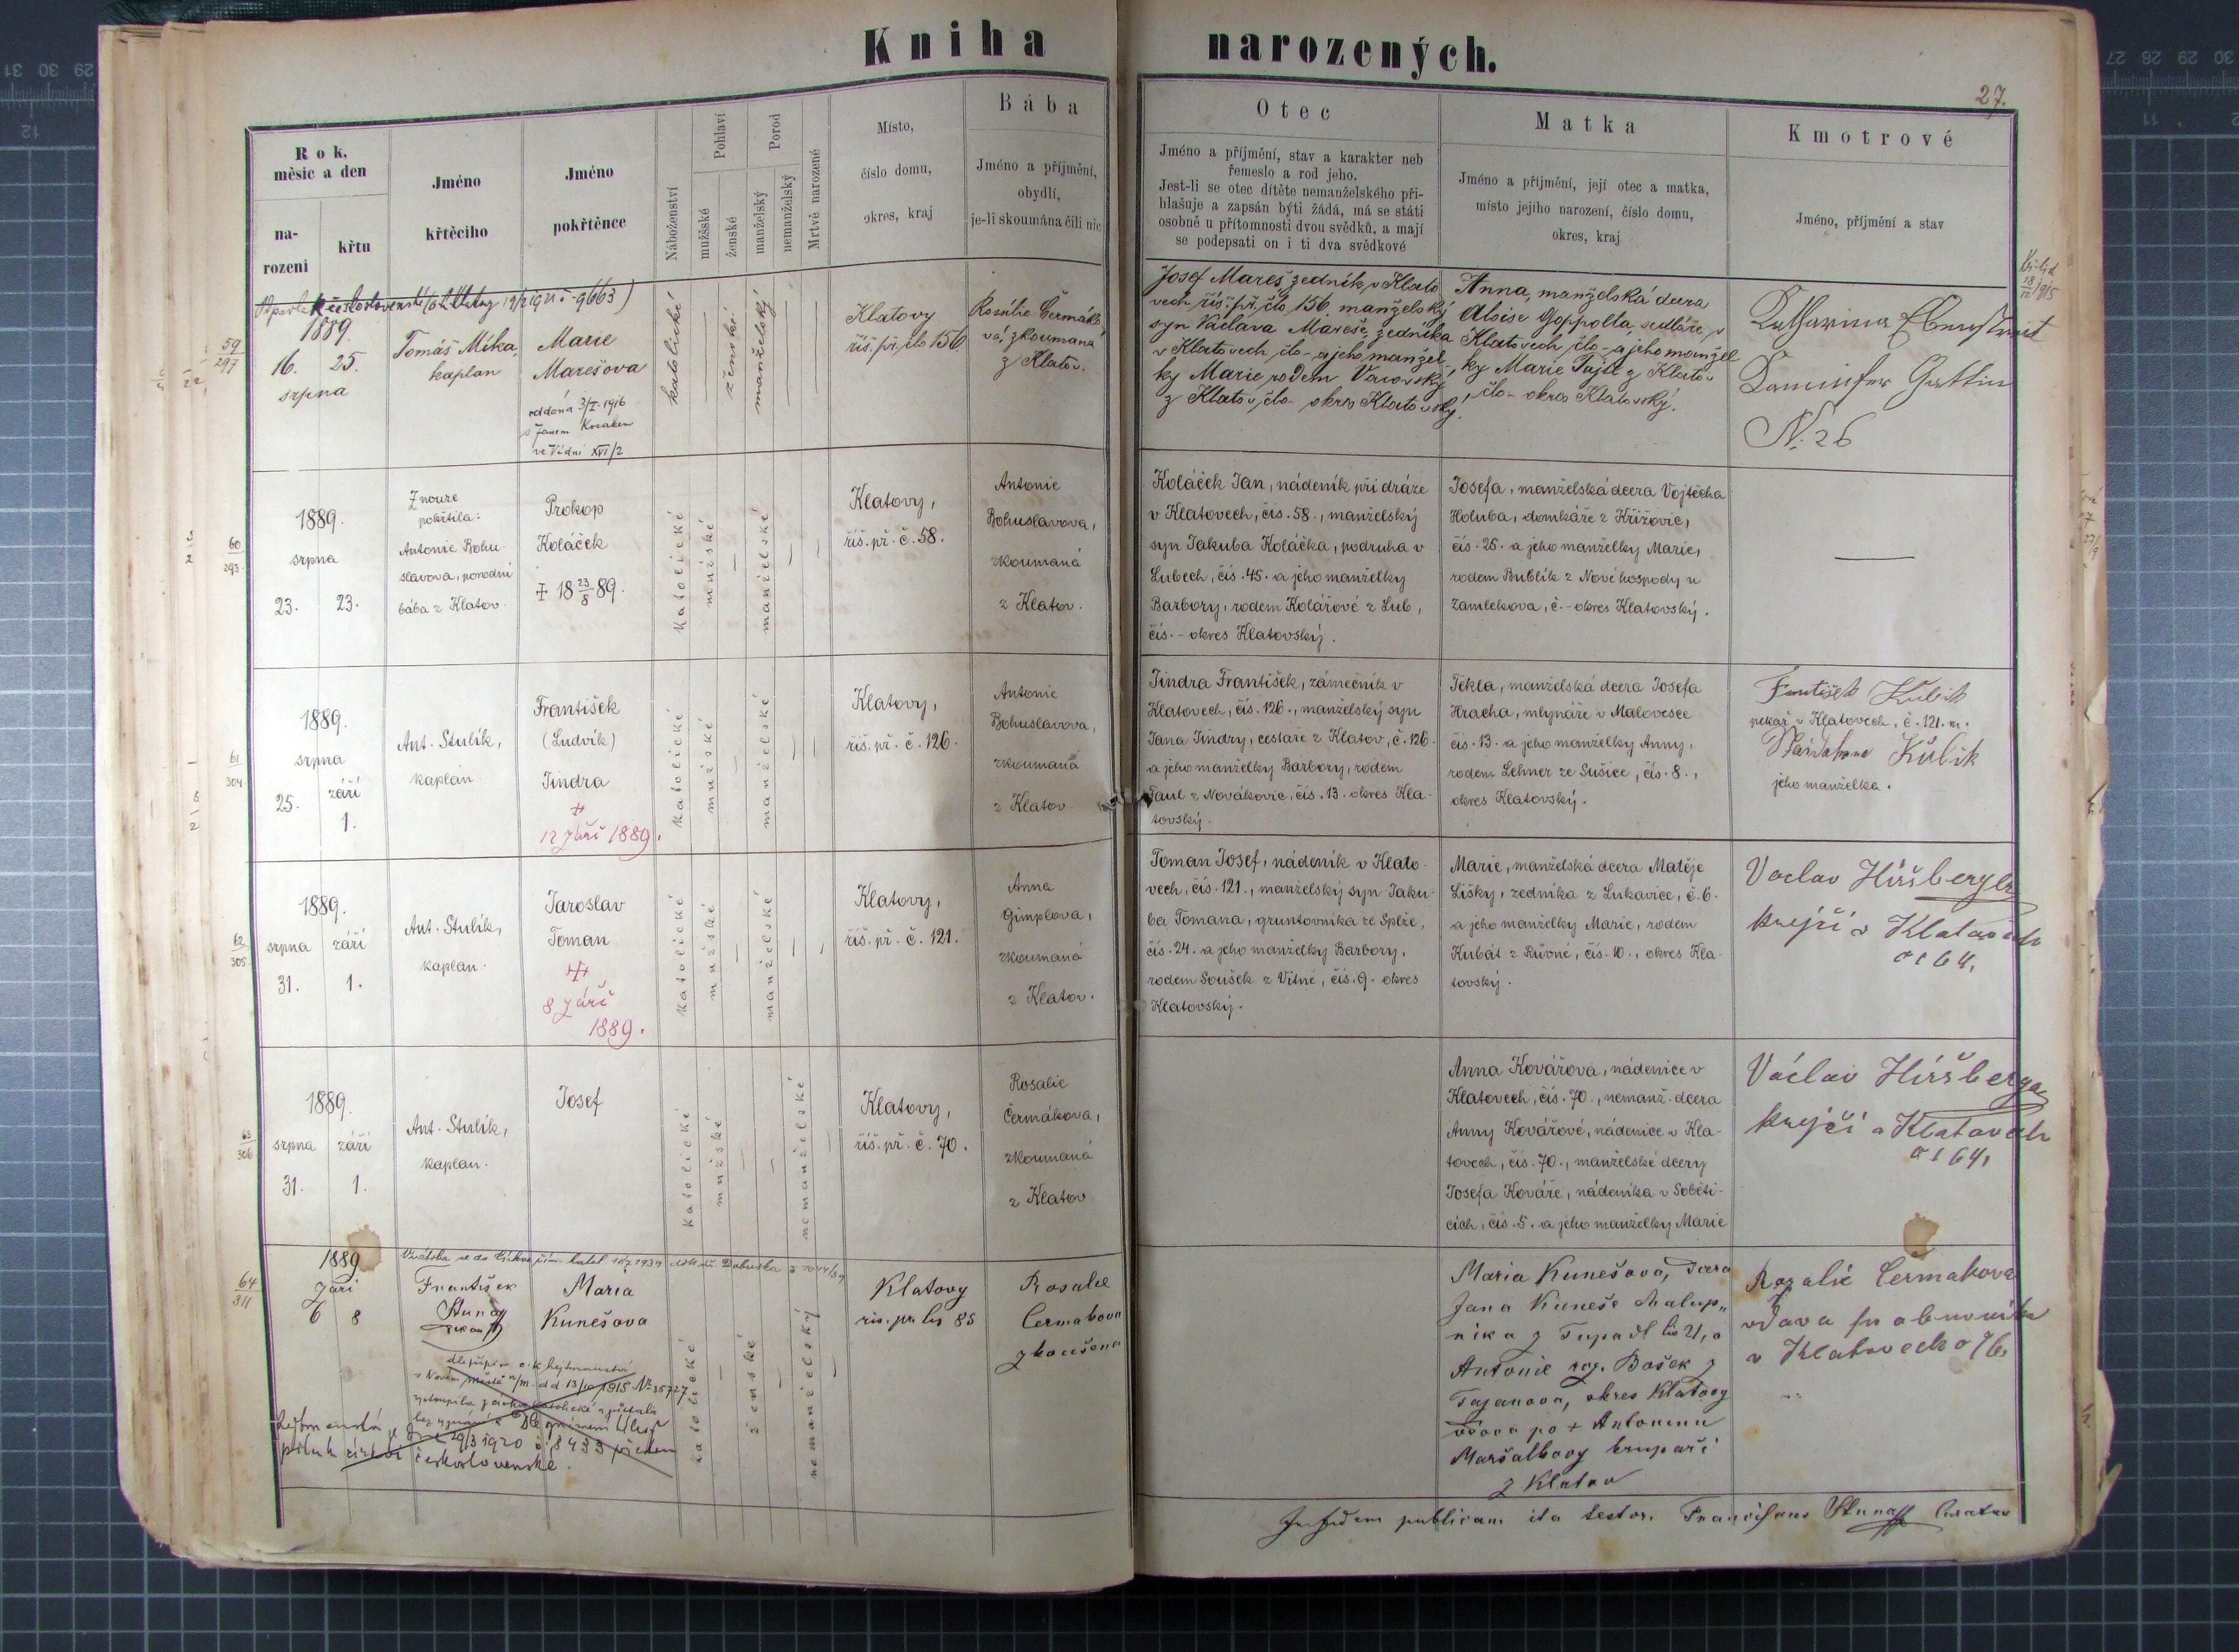 Kniha narozených.
27.
Rok, měsíc a den
narození
křtu
Jméno křtěcího
Jméno pokřtěnce
Náboženství
Pohlaví
mužšské
ženské
Porod
manželský
nemanželský
Mrtvě narozené
Místo,
číslo domu,
okres, kraj
Bába
Jméno a příjmění,
obydlí,
je-li skoumána čili nic
Otec
Jméno a příjmění, stav a karakter neb
řemeslo a rod jeho.
Jest-li se otec dítěte nemanželského při-
hlašuje a zapsán býti žádá, má se státi
osobně u přítomnosti dvou svědků, a mají
se podepsati on i ti dva svědkové
Matka
Jméno a příjmění, její otec a matka,
místo jejího narození, číslo domu,
okres, kraj
Kmotrové
Jméno, příjmění a stav
59
297
1889.
16. 25.
srpna
Tomáš Míka,
kaplan
Marie
Marešova
oddána 3/I 1916
s Janem
ve Vídni XVI/2
katolické
ženské
manželský
Klatovy
říš. př. člo 156
Rosálie Čermáko
vá, zkoumaná
z Klatov.
Josef Mareš, zedník v Klato
vech říš. př. člo 156. manželský
syn Václava Mareše, zedníka
v Klatovech, člo - a jeho manžel
ky Marie rodem Vacovský
z Klatov, člo - okres Klatovský.
Anna, manželská dcera
Aloise Goppolta, sedláře, v
Klatovech, člo - a jeho manžel
ky Marie Tajd z Klatov
, člo - okres Klatovský.
Katharina
Gattin
N. 26
60
293
1889.
srpna
23. 23.
Z nouze
pokřtila:
Antonie Bohu-
slavova, porodní
bába z Klatov.
Prokop
Koláček
+ 18 23/8 89.
katolické
mužské
manželské
Klatovy,
říš. př. č. 58.
Antonie
Bohuslavova,
zkoumaná
z Klatov.
Koláček Jan, nádeník při dráze
v Klatovech, čís. 58., manželský
syn Jakuba Koláčka, podruha v
Lubech, čís. 45. a jeho manželky
Barbory, rodem Kolářové z Lub,
čís. - okres Klatovský.
Josefa, manželská dcera Vojtěcha
Holuba, domkáře z Křížovic,
čís. 25. a jeho manželky Marie,
rodem Bublík z Nové hospody u
Zamlekova, č. - okres Klatovský.
61
304
1889.
srpna
září
25. 1.
Ant. Stulík,
kaplan
František
(Ludvík)
Jindra
+
12 Září 1889.
katolické
mužské
manželské
Klatovy,
říš. př. č. 126.
Antonie
Bohuslavova,
zkoumaná
z Klatov
Jindra František, zámečník v
Klatovech, čís. 126., manželský syn
Jana Jindry, cestáře z Klatov, č. 126.
a jeho manželky Barbory, rodem
Taul z Novákovic, čís. 13. okres Kla-
tovský.
Tekla, manželská dcera Josefa
Hracha, mlynáře v Malovesce
čís. 13. a jeho manželky Anny,
rodem Lehner ze Sušice, čís. 8.,
okres Klatovský.
František Kubík
pekař v Klatovech, č. 121. m.
Kubík
jeho manželka.
62
305
1889.
srpna září
31. 1.
Ant. Stulík,
kaplan.
Jaroslav
Toman
8 Září
1889.
katolické
mužské
manželské
Klatovy,
říš. př. č. 121.
Anna
Gimplova,
zkoumaná
z Klatov.
Toman Josef, nádeník v Klato-
vech, čís. 121., manželský syn Jaku-
ba Tomana, gruntovníka ze Splže,
čís. 24. a jeho manželky Barbory,
rodem Soušek z Vítně, čís. 9. okres
Klatovský.
Marie, manželská dcera Matěje
Lišky, zedníka z Lukavice, č. 6.
a jeho manželky Marie, rodem
Kubát z Růvné, čís. 10., okres Kla-
tovský.
Vaclav Hiršberger
krejčí v Klatovech
č 164.
63
306
1889.
srpna září
31. 1.
Ant. Stulík,
kaplan.
Josef
katolické
mužské
nemanželské
Klatovy,
říš. př. č. 70.
Rosalie
Čermákova,
zkoumaná
z Klatov
Anna Kovářova, nádenice v
Klatovech, čís. 70., nemanž. dcera
Anny Kovářové, nádenice v Kla-
tovech, čís. 70., manželské dcery
Josefa Kováře, nádeníka v Soběti-
cích, čís. 5. a jeho manželky Marie
Václav Hiršberger
krejčí v Klatovech
č 164,
64
311
1889
Září
6 8
František
děkan
Maria
Kunešova
katolické
ženské
nemanželský
Klatovy
řís. pr čís 85
Rosalie
Čermakova
zkoušena
Maria Kunešova, dcera
Jana Kuneše chalup„
níka z Tupadl čís 21, a
Antonie roz. Bošek z
Tajanova, okres Klatovy
vdova po + Antonínu
Maršalkovy krupaři
z Klatov
Rozalie Čermakova
vdova
v Klatovech
In fidem publicam ita testor. Franciscus